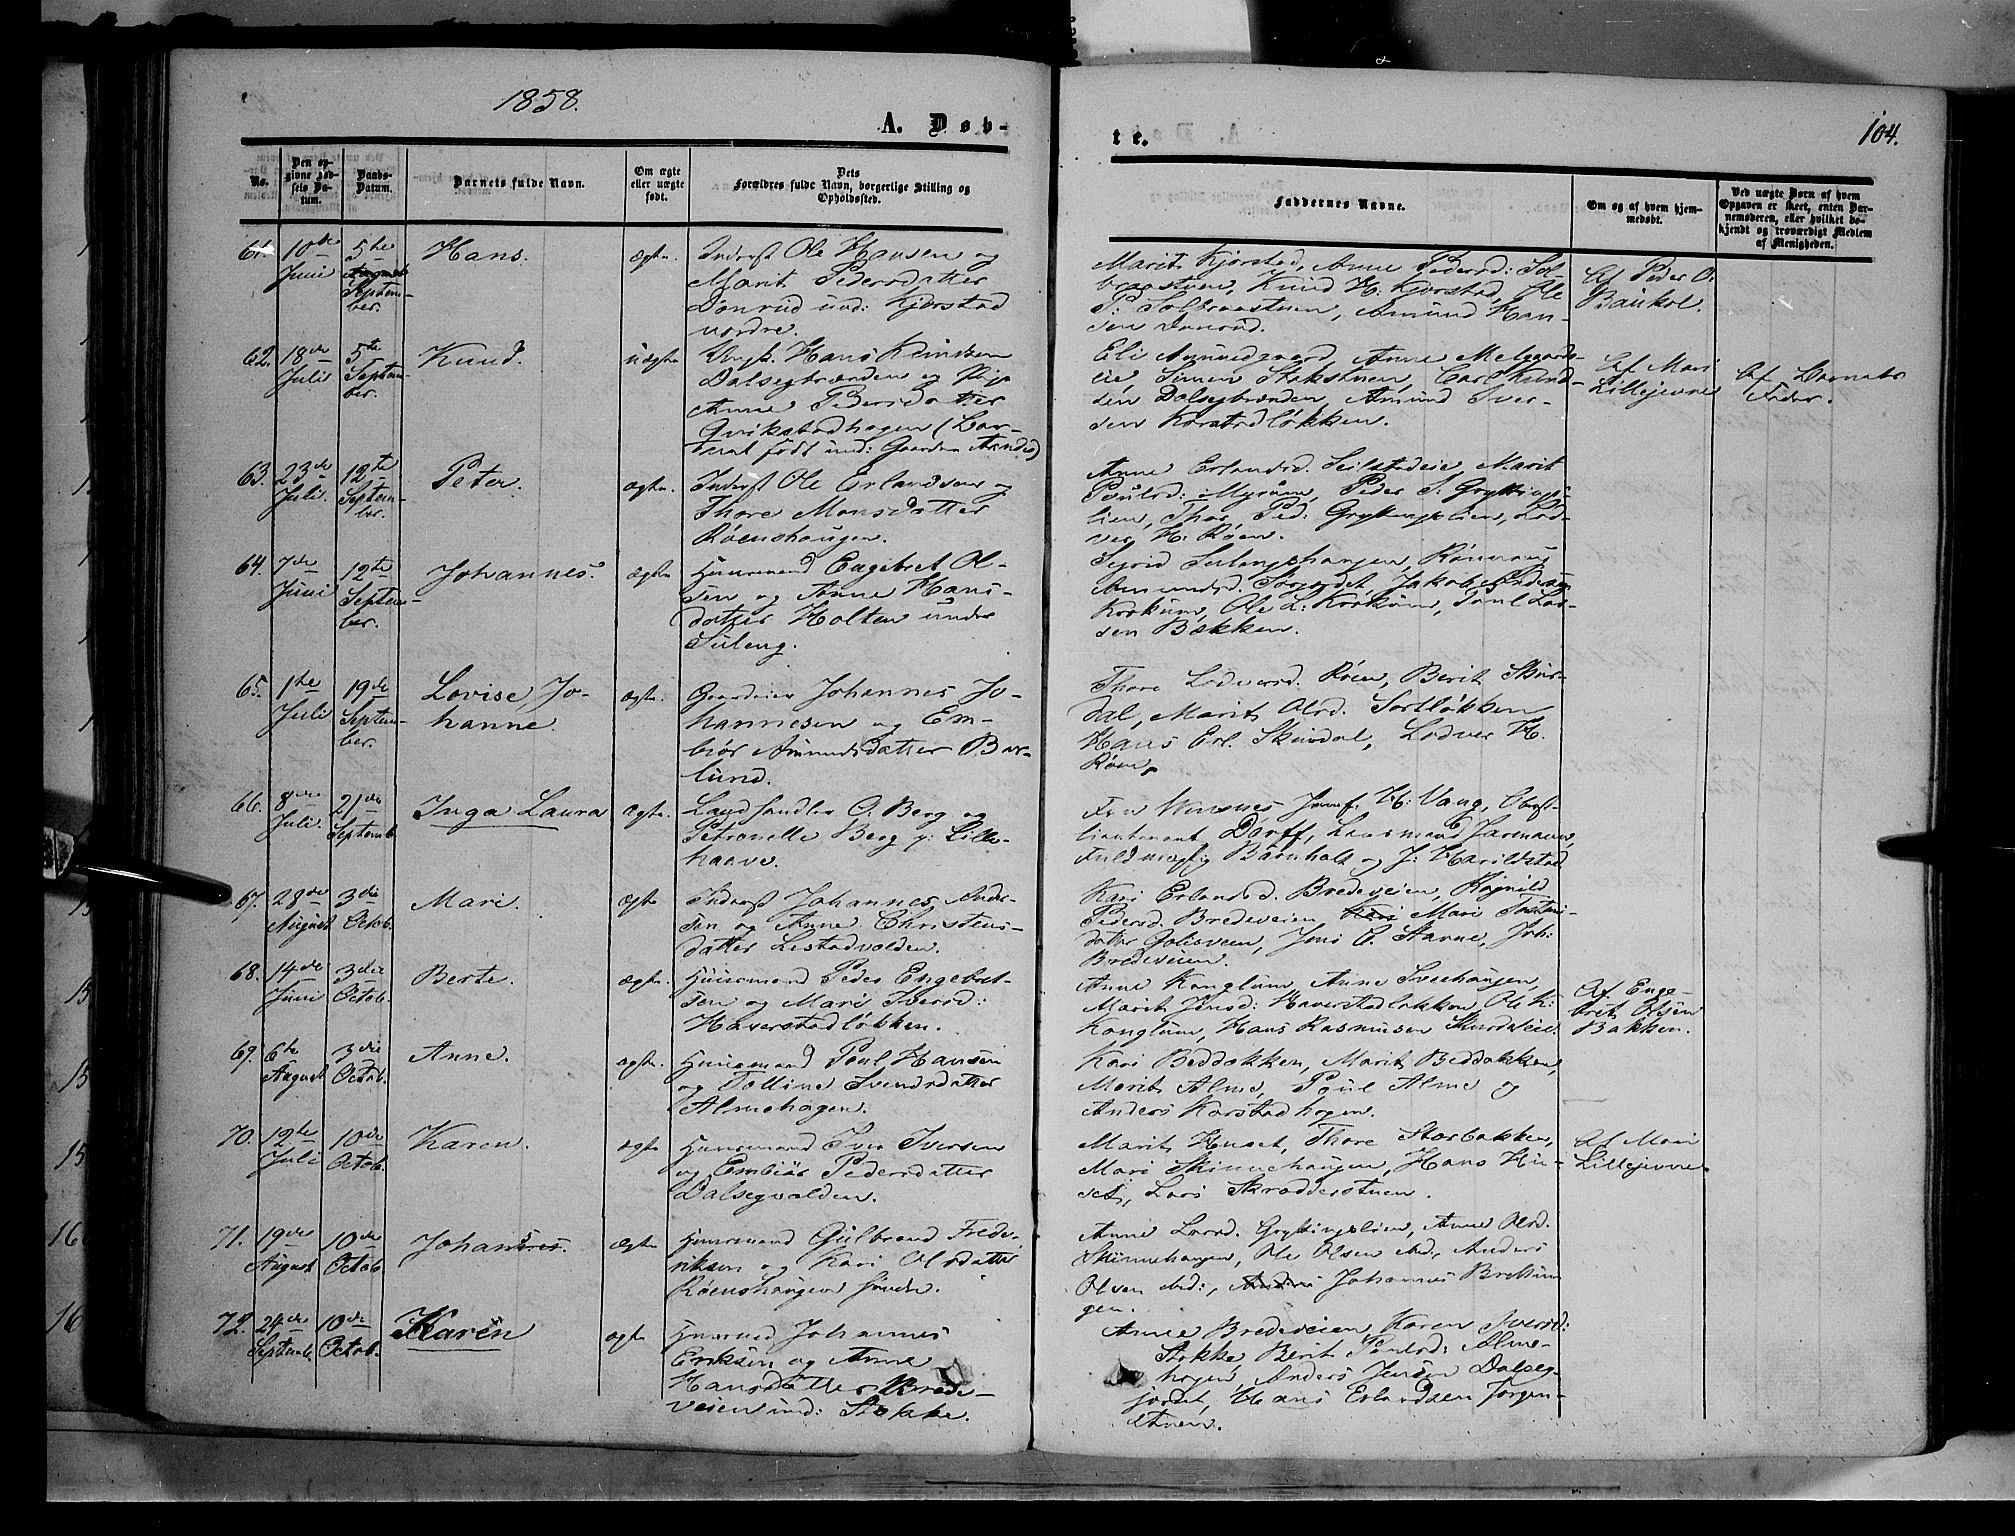 1858.
A. Døb-
te.
104.
No.
Den op-
givne Fød-
sels Da-
tum.
Daabs-
Datum.
Barnets fulde Navn.
Om ægte
eller uægte
født.
Dets
Forældres fulde Navn, borgerlige Stilling og
Opholdssted.
Faddernes Navne.
Om og af hvem hjem-
medøbt.
Ved uægte Børn af hvem
Opgaven er skeet, enten Bar-
nemoderen, eller hvilket be-
kjendt og troværdigt Medlem
af Menigheden.
61.
10de
Juni
5te
August
Septem-
ber.
Hans.
ægte.
Inderst Ole Hansen og
Marit Pedersdatter
Donrud und: Kjorstad
nordre.
Marit Kjorstad, Anne Pedersd: Sol-
braastuen, Knud H: Kjorstad, Ole
P: Solbraastuen, Amund Han-
sen Donrud.
Af Peder O.
Baukol.
62.
18de
Juli
5te
Septem-
ber.
Knud.
uægte
Ungk. Hans Knudsen
Dalsegbrænden og Pige
Anne Pedersdatter
Qvikstadhagen (Bar-
net født und: Gaarden Amdes)
Eli Amundgaard, Anne Melgaards-
eie, Simen Stokstuen, Carl Knud-
sen Dalsegbrænden, Amund Iver-
sen Korstadløkken.
Af Mari
Lillejevne
Af Barnets
Fader.
63.
23de
Juli.
12te
Septem-
ber.
Peter.
ægte.
Inderst Ole Erlandsen og
Thore Monsdatter
Røenshaugen.
Anne Erlandsd. Seilstadeie, Marit
Poulsd: Myrum, Peder S: Gryttings-
lien, Thor Ped: Gryttingslien, Lod-
ver H. Røen.
64.
7de
Juni
12te
Septem-
ber.
Johannes.
ægte.
Huusmand Engebret Ol-
sen og Anne Hans-
datter Holten under
Suleng.
Sigrid Sulengshaugen, Rønnaug
Amundsd.
Korkum, Ole L: Korkum, Poul Lar-
sen Bakken.
65.
1ste
Juli
19de
Septem-
ber.
Lovise, Jo-
hanne.
ægte.
Gaardeier Johannes Jo-
hannesen og Em-
biør Amundsdatter Bor-
lund.
Thore Lodversd. Røen, Berit Skur-
dal, Marit Olsd. Sortløkken
Hans Erl. Skurdal, Lodver H.
Røen.
66.
8de
Juli.
21de
Septemb.
Inga Laura
ægte.
Landhandler O. Berg og
Petronelle Berg p: Lille-
haave.
Fru Winsnes Jomf. H: Vang, Oberst-
lieutenant Dorff, Leensmand Jarmann,
Fuldmægtig Barnholt og J: Harildstad
67.
28de
August
3die
Octob.
Mari.
ægte
Inderst Johannes Ander-
sen og Anne Christens-
datter Listadvolden.
Kari Erlandsd. Bredeveien, Rognild
Pedersd. Bredeveien, Mari Tosteins-
datter Golisveen, Jens C. Stavne, Joh:
Bredeveien.
68.
14de
Juni
3die
Octob.
Berte.
ægte.
Huusmand Peder Engebret-
sen og Mari Iversd:
Haverstadløkken.
Anne Konglum, Anne Svehaugen,
Marit Jensd: Haverstadløkken, Ole K:
Konglum, Hans Rasmusen Skurdaleie.
Af Enge-
bret Olsen
Bakken.
69.
6te
August
3die
Octob.
Anne.
ægte.
Huusmand Poul Hansen
og Tolline Svendsdatter
Almehagen.
Kari Beddokken, Marit Beddokken,
Marit Alme, Poul Alme og
Anders Korstadhagen.
70.
12te
Juli
10de
Octob.
Karen.
ægte
Huusmand Iver Iversen
og Embiør Pedersdatter
Dalsegvolden.
Marit Huset, Thore Storbakken,
Mari Skinnehaugen, Hans Hu-
set, Lars Skrædderstuen.
Af Mari
Lillejevne
71.
19de
August
10de
Octob.
Johannes.
ægte
Huusmand Gulbrand Frede-
riksen og Kari Olsdatter
Røenshaugen søndre.
Anne Larsd. Gryttingslien, Anne Olsd.
Skinnehaugen, Ole Olsen ibd., Anders
Olsen ibd:, Anders Johannes Brettin-
gen.
72.
24de
Septemb.
10de
Octob.
Karen
ægte
Huusmand Johannes
Eriksen og Anne
Hansdatter Brede-
veien und: Stokke.
Anne Bredeveien, Karen Iversd:
Stokke, Berit Poulsd: Alme-
hagen, Anders Jensen Dalseg-
jordet, Hans Erlandsen Jørgen-
stuen.